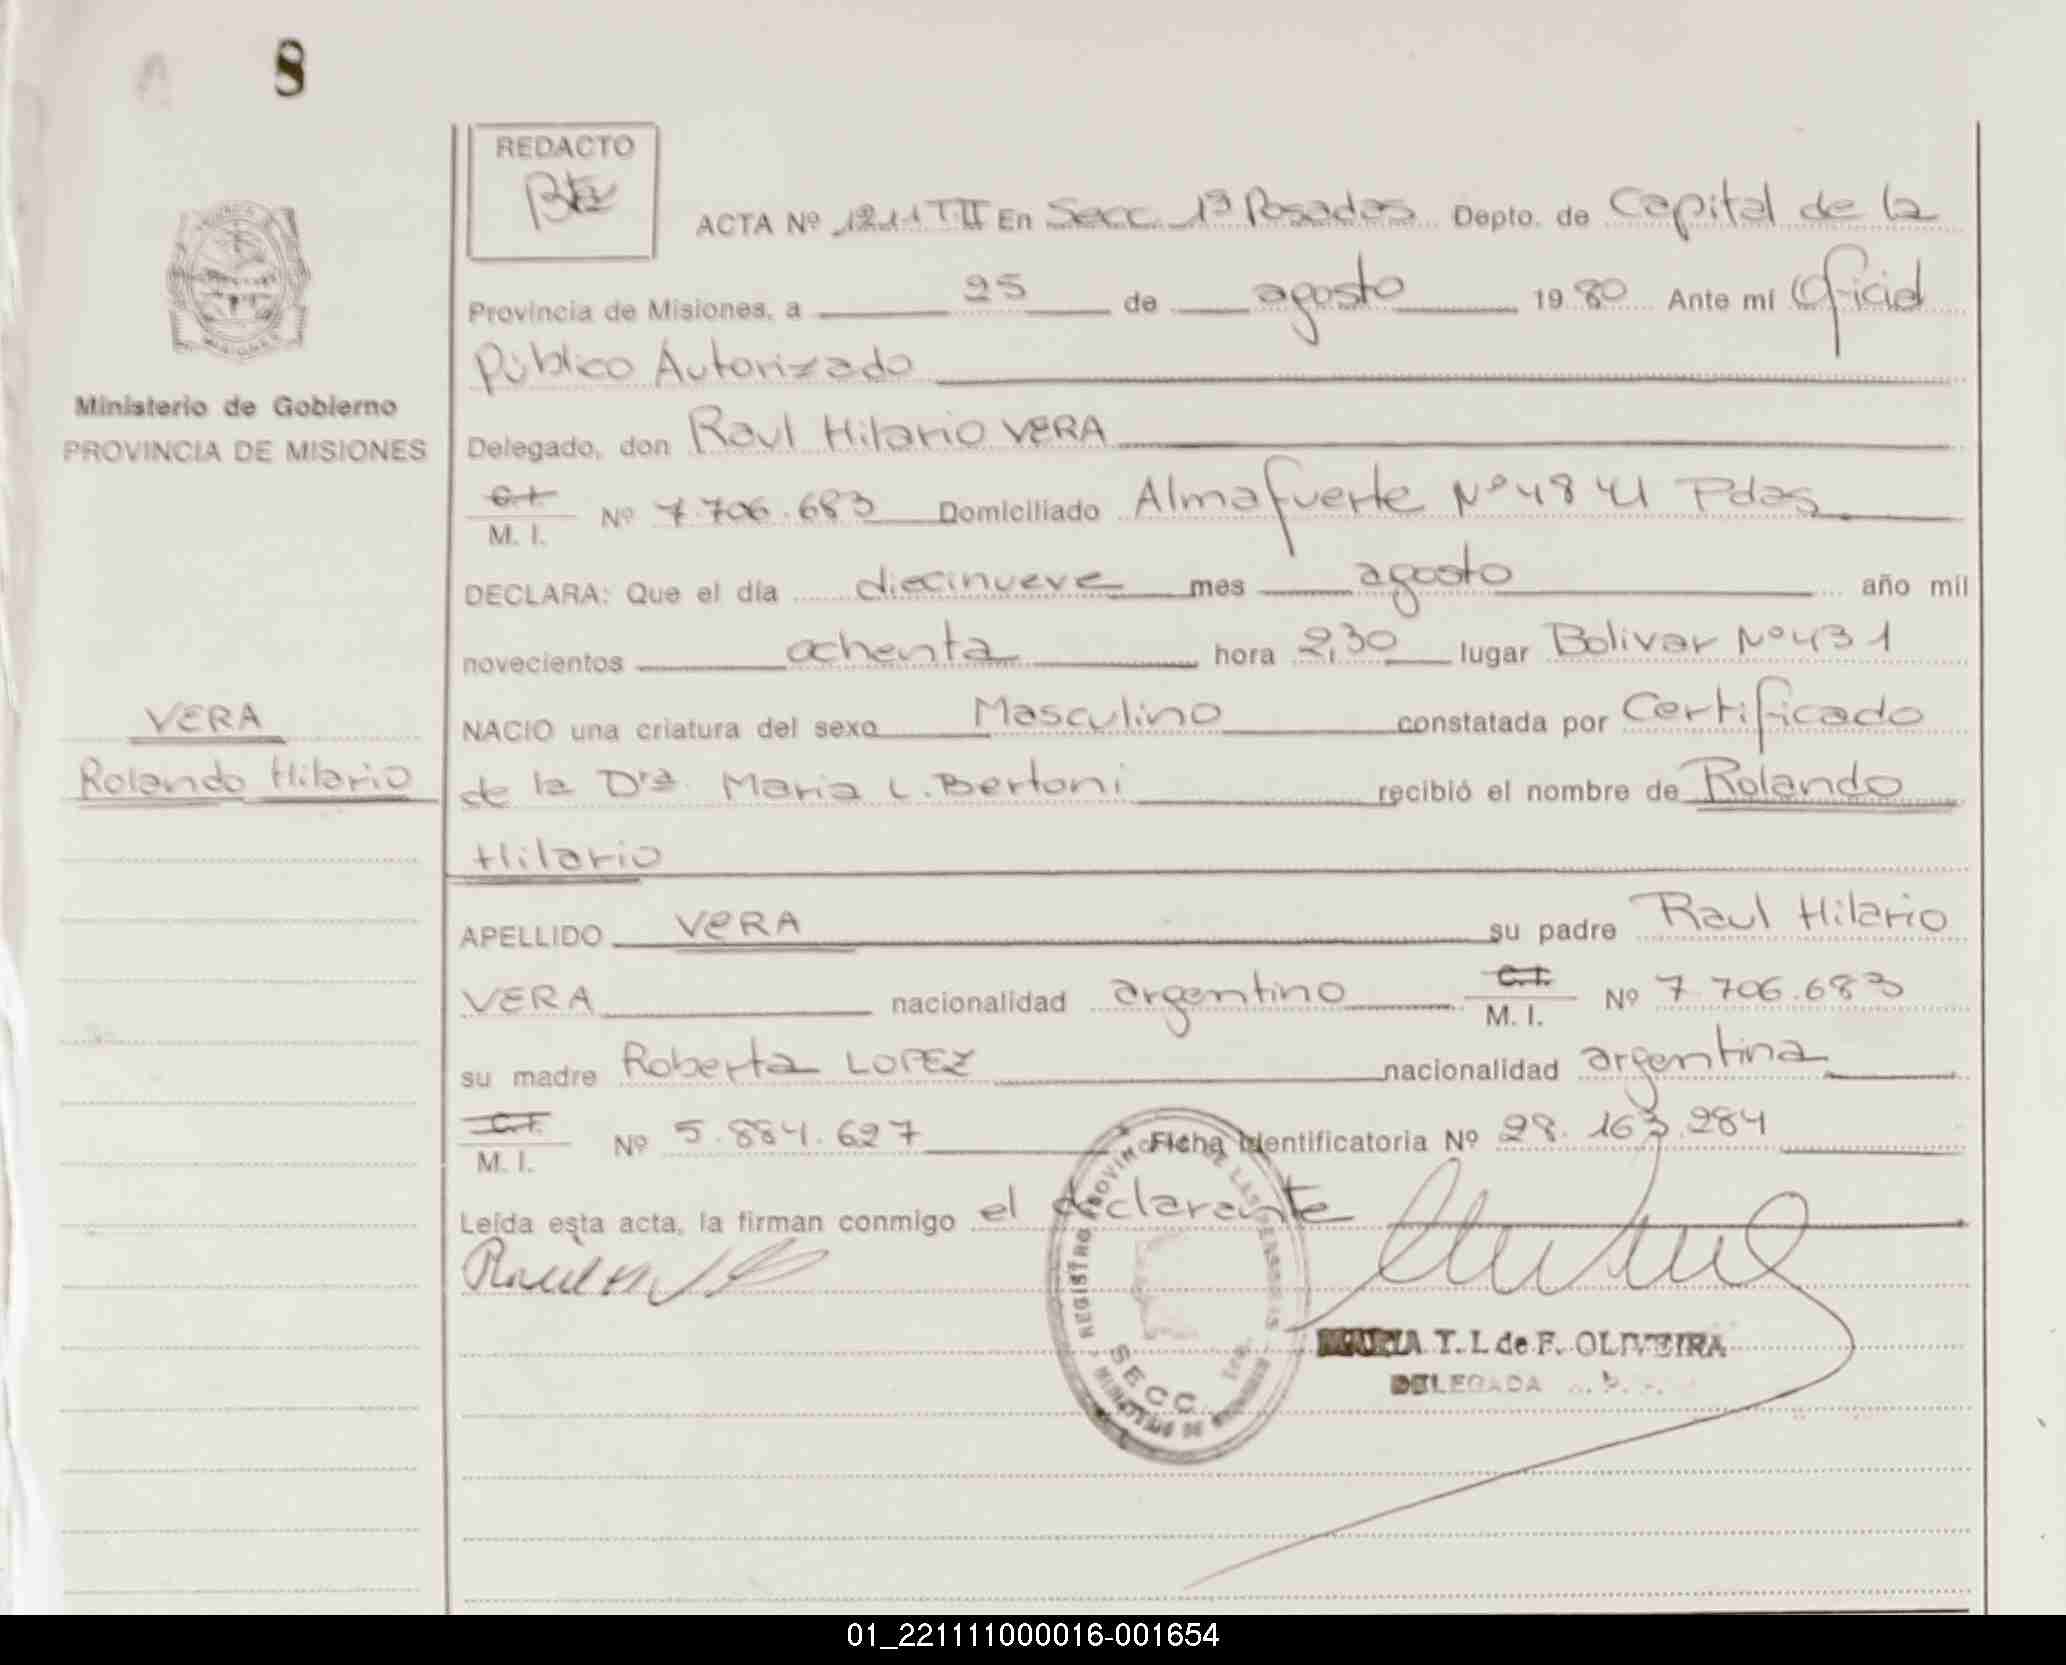 8
REDACTO
ACTA Nº 1211 TII En Secc. 1ª Posadas Depto. de Capital de la
Provincia de Misiones, a 25 de agosto 1980 Ante mi Oficial
Público Autorizado
Ministerio de Gobierno
PROVINCIA DE MISIONES
Delegado, don Raul Hilario VERA
C.I.
M. I. Nº 7.706.683 Domiciliado Almafuerte Nº 4841 Pdas
DECLARA: Que el día diecinueve mes agosto año mil
novecientos ochenta hora 2,30 lugar Bolivar Nº 431
VERA
Rolando Hilario
NACIO una criatura del sexo Masculino constatada por Certificado
de la Dra. Maria L. Bertoni recibió el nombre de Rolando
Hilario
APELLIDO VERA su padre Raul Hilario
VERA nacionalidad argentino C.I. M. I. Nº 7 706.683
su madre Roberta LOPEZ nacionalidad argentina
C.I.
M. I. Nº 5.884.627 Ficha Identificatoria Nº 28.163.284
Leída esta acta, la firman conmigo el declarante
REGISTRO PROVINCIAL DE LAS PERSONAS
SECC. 1ra.
MARIA T. L de F. OLIVEIRA
DELEGADA
01_221111000016-001654